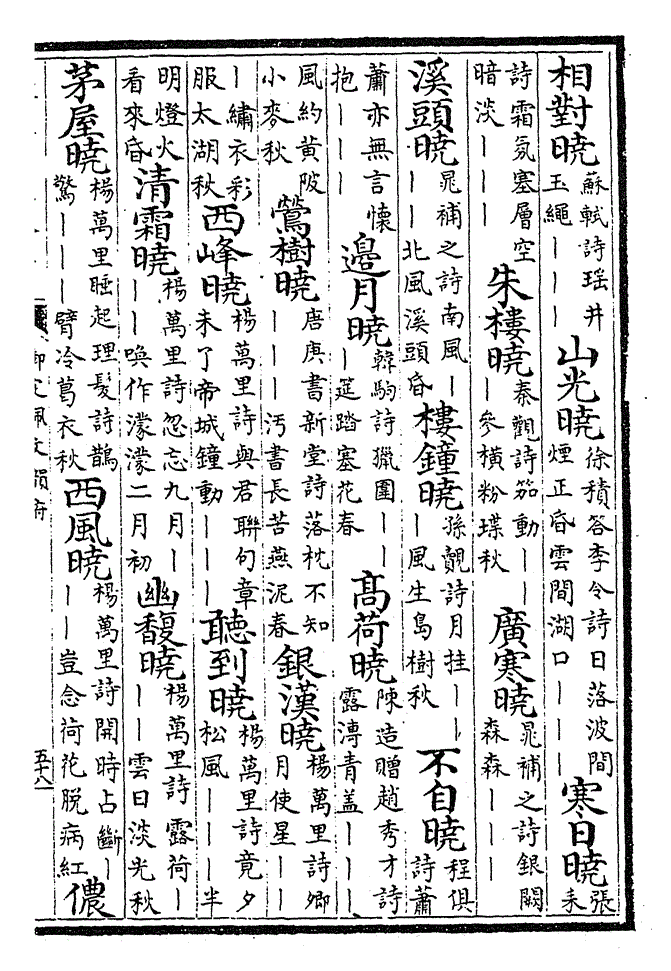 相對曉蘇軾詩瑶井玉繩｜｜｜山光曉徐積答李令詩日落波間煙正昏雲間湖口｜｜｜寒日曉張耒
詩霜氣塞層空暗淡｜｜｜朱樓曉秦觀詩笳動｜｜｜參橫粉堞秋廣寒曉晁補之詩銀闕森森｜｜｜
溪頭曉晁補之詩南風｜｜｜北風溪頭昏樓鐘曉孫覿詩月挂｜｜｜風生島樹秋不自曉程俱詩蕭
蕭亦無言懷抱｜｜｜邊月曉韓駒詩獵圍｜｜｜筵踏塞花春高荷曉陳造贈趙秀才詩露漙青盖｜｜｜
風約黄陂小麥秋鶯樹曉唐庚書新堂詩落枕不知｜｜｜汚書長苦燕泥春銀漢曉楊萬里詩卿月使星｜｜
｜繡衣彩服太湖秋西峰曉楊萬里詩與君聯句章未了帝城鐘動｜｜｜聽到曉楊萬里詩竟夕松風｜｜｜半
明燈火看來昏清霜曉楊萬里詩忽忘九月｜｜｜喚作濛濛二月初幽馥曉楊萬里詩露荷｜｜｜雲日淡光秋
茅屋曉楊萬里睡起理髮詩鵲驚｜｜｜臂冷葛衣秋西風曉楊萬里詩開時占斷｜｜｜豈念荷花脱病紅儂
御定佩文韻府
五十八